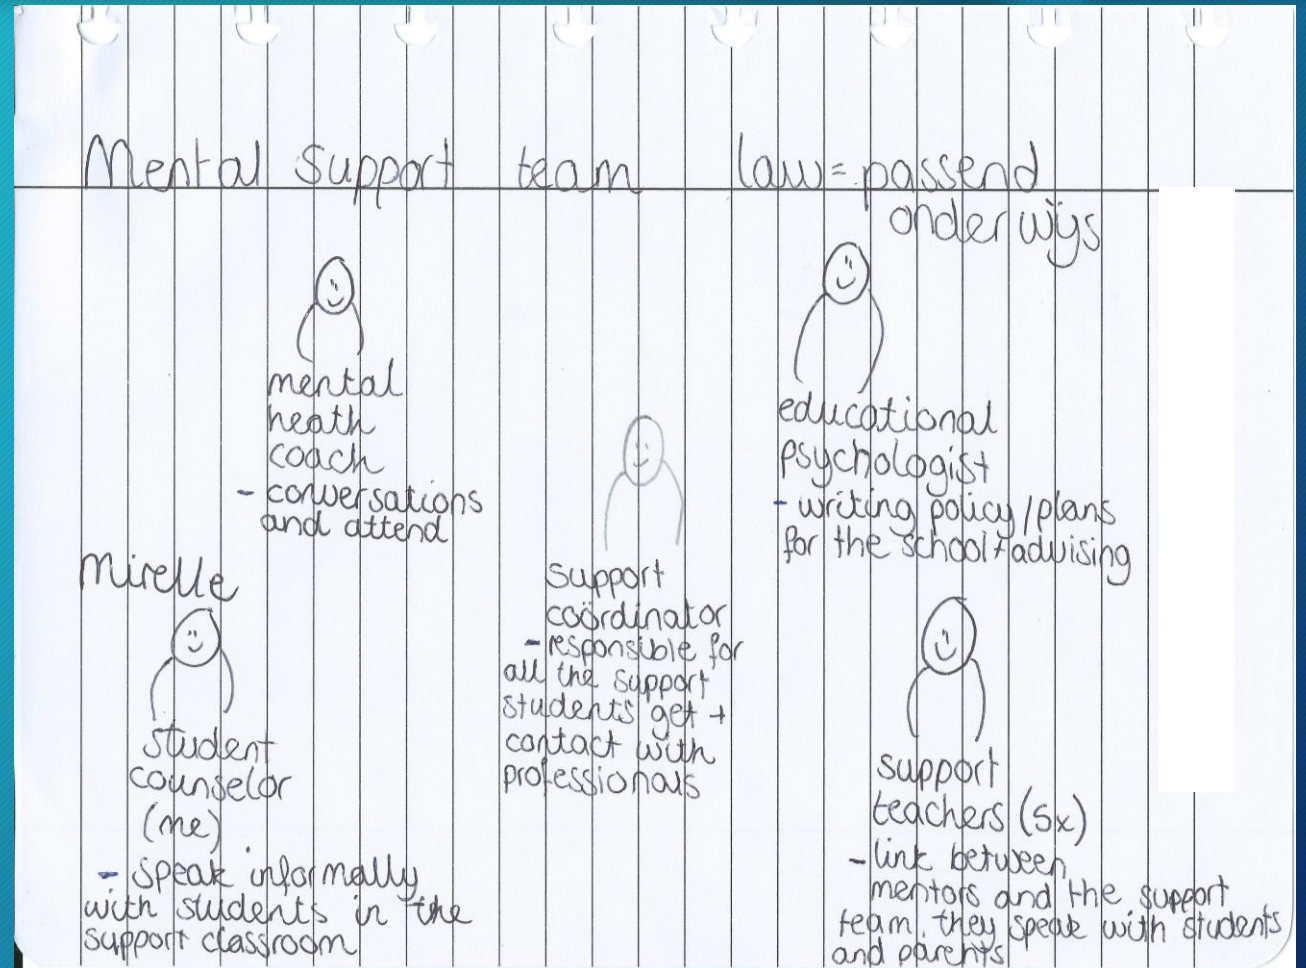 Mental Support team law = passend
onderwijs
mental
heath
coach
- conversations
and attend
educational
psychologist
- writing policy/plans
for the school + advising
support
coördinator
- responsible for
all the support
students get +
contact with
professionals
Mirelle
student
counselor
(me)
- speak informally
with students in the
support classroom
support
teachers (5x)
- link between
mentors and the support
team, they speak with students
and parents